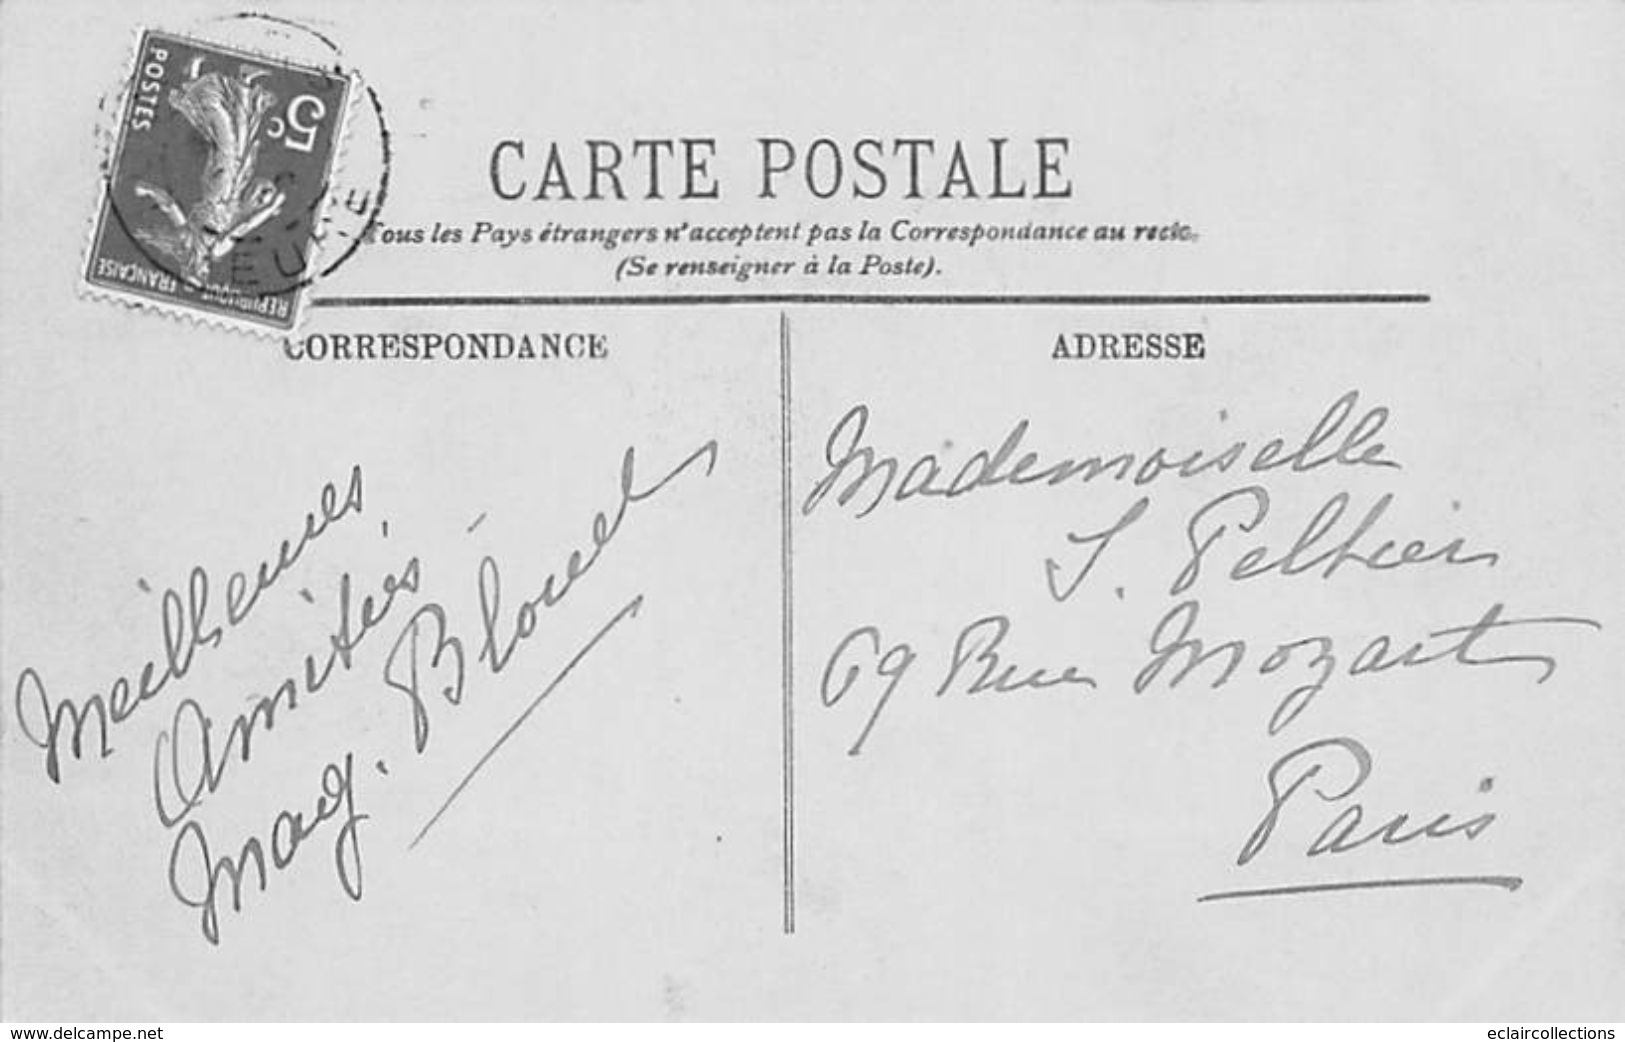 POSTES
5c
REPUBLIQUE FRANÇAISE
CARTE POSTALE
Tous les Pays étrangers n'acceptent pas la Correspondance au recto.
(Se renseigner à la Poste).
CORRESPONDANCE
Meilleures
Amitiés
Mag. Blouet
ADRESSE
Mademoiselle
S. Peltier
69 Rue Mozart
Paris
www.delcampe.net
eclaircollections